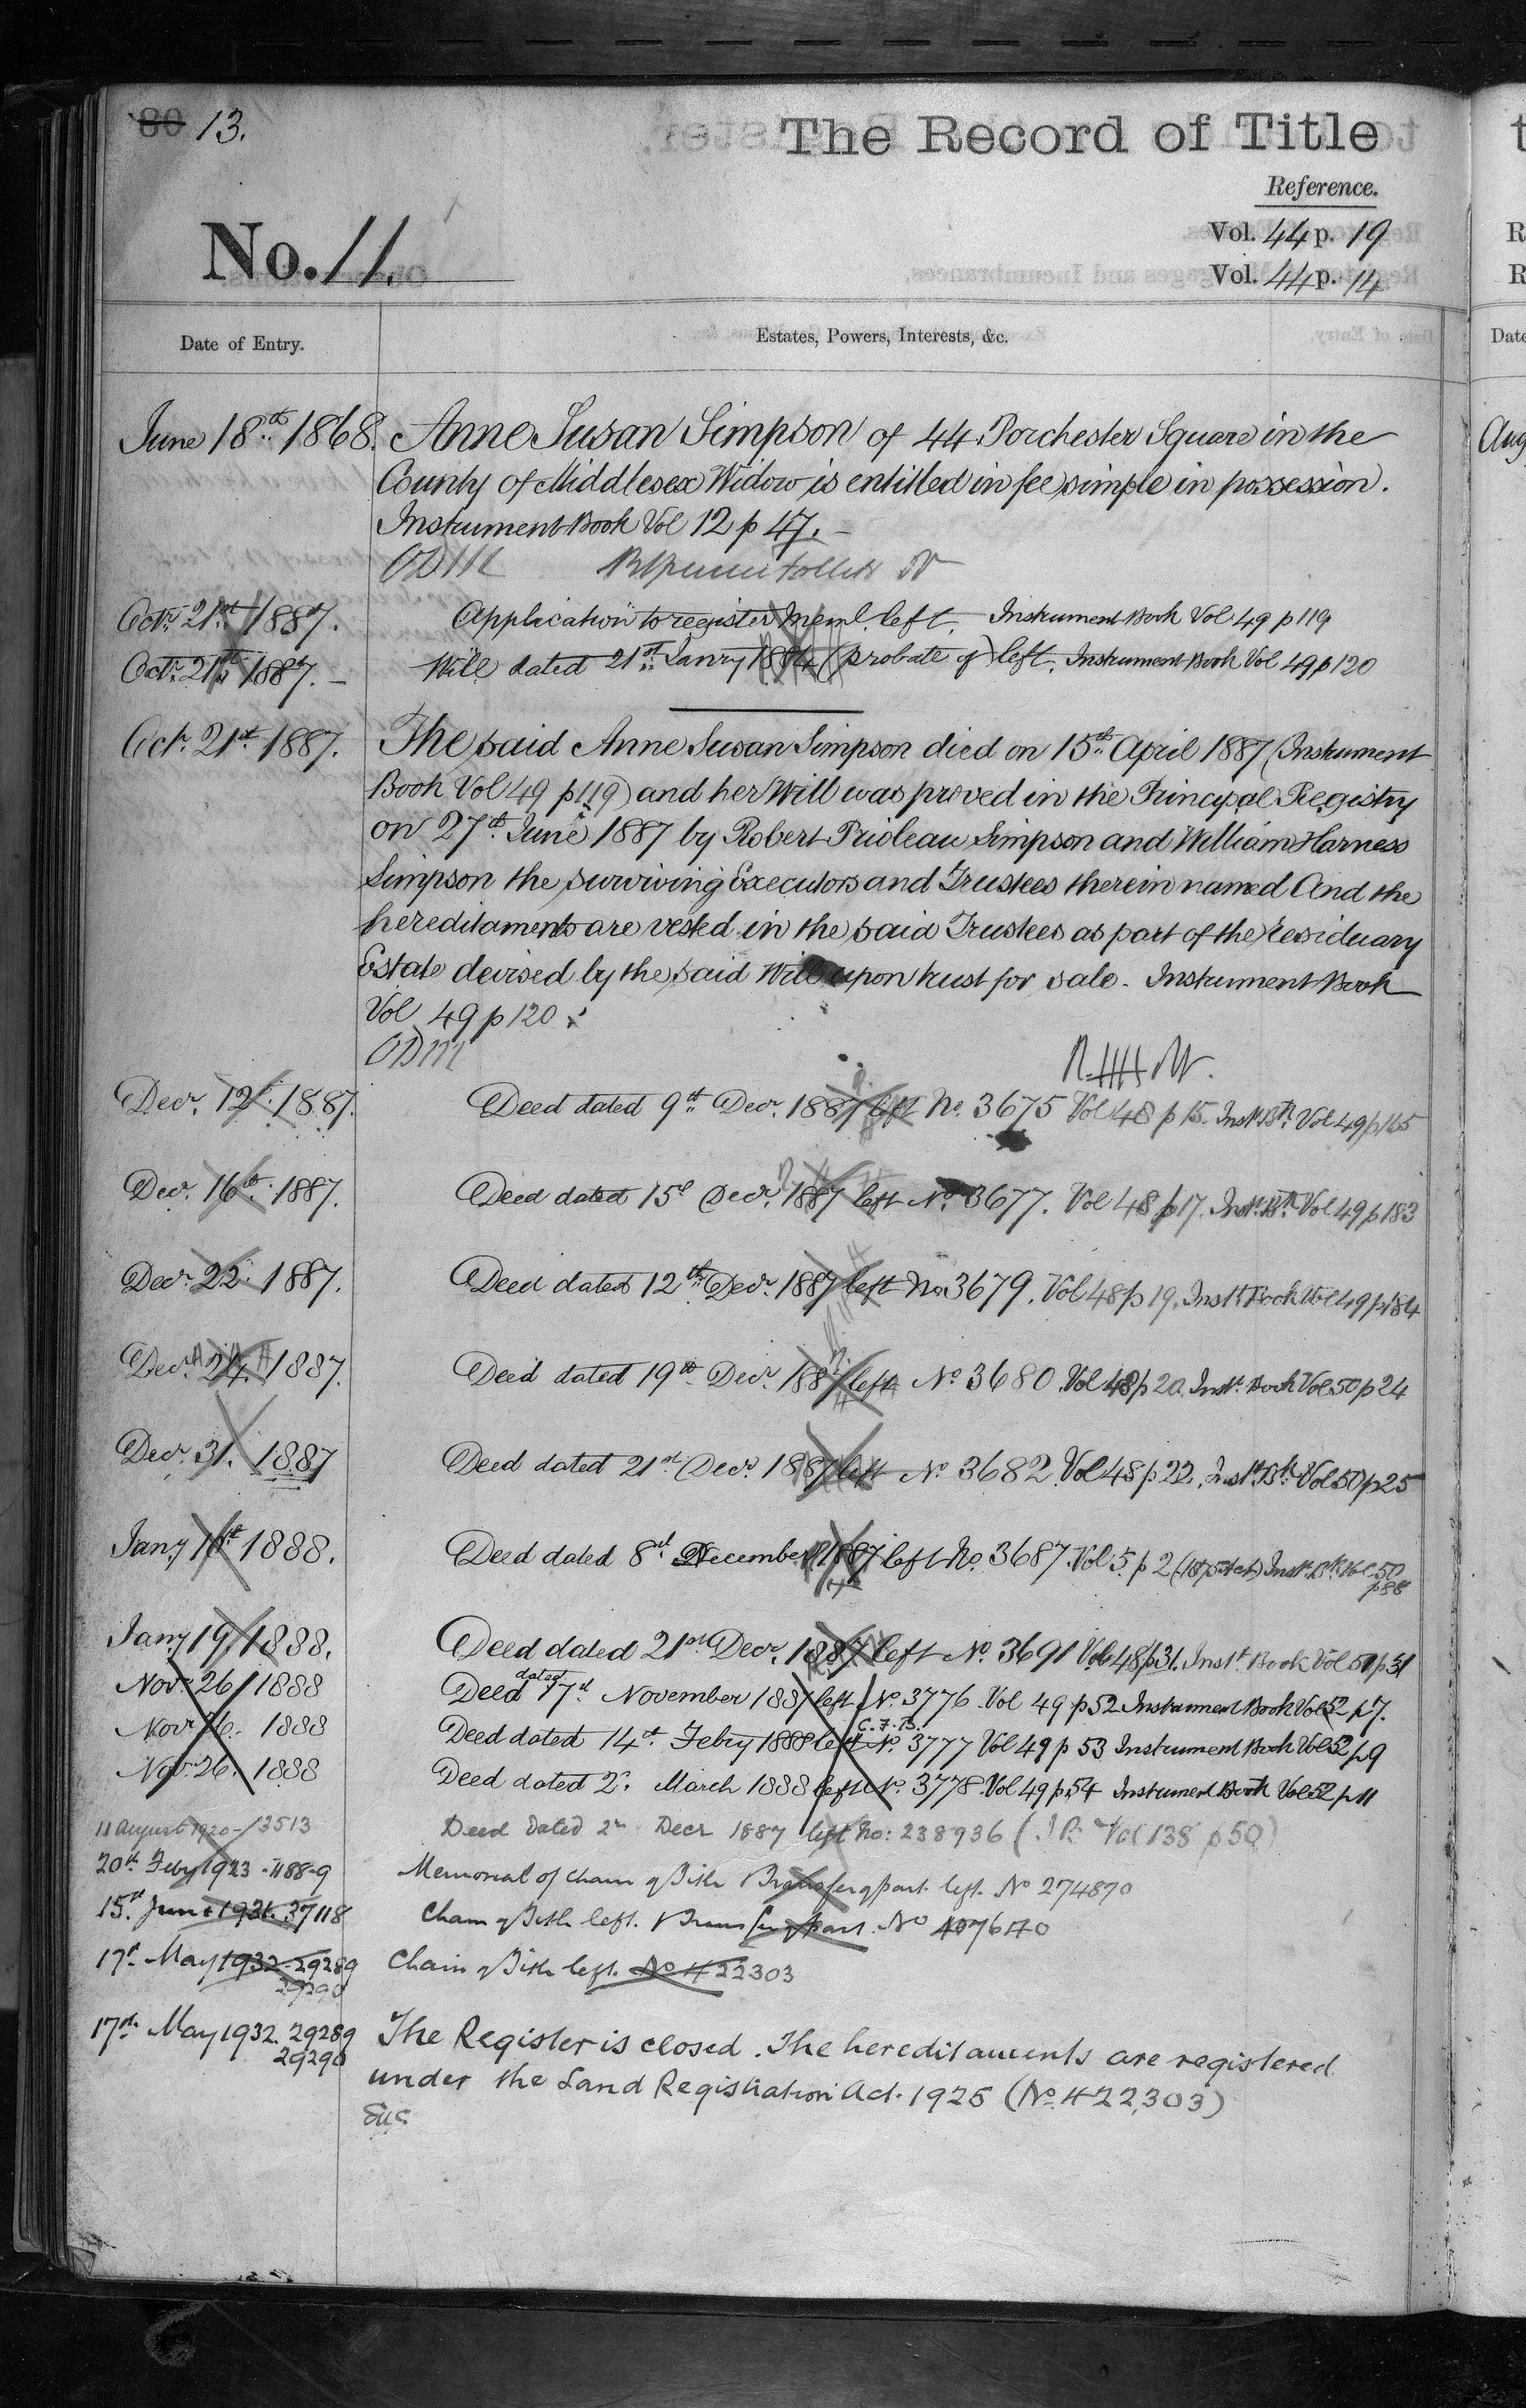 80 13.
The Record of Title
Reference.
No. 11.
Vol. 44 p. 19
Vol. 44 p. 14
Date of Entry.
Estates, Powers, Interests, &c.
June 18th 1868. Anne Susan Simpson of 44 Porchester Square in the
County of Middlesex Widow is entitled in fee simple in possession.
Instrument Book Vol 12 p 47.
ODM
Octr. 21st 1887. Application to register Meml. left. Instrument Book Vol 49 p 119
Octr. 21st 1887. Will dated 21st Janry 1884 (probate of) left. Instrument Book Vol 49 p 120
Oct. 21st 1887. The said Anne Susan Simpson died on 15th April 1887 (Instrument
Book Vol 49 p 119) and her Will was proved in the Principal Registry
on 27th June 1887 by Robert Prioleau Simpson and William Harness
Simpson the surviving Executors and Trustees therein named And the
hereditaments are vested in the said Trustees as part of the residuary
Estate devised by the said Will upon trust for sale. Instrument Book
Vol 49 p 120
ODM
Decr. 12th 1887. Deed dated 9th Decr. 1887 left No. 3675 Vol 48 p 15. Inst. Bk. Vol 49 p 165
Decr. 16th 1887. Deed dated 15th Decr. 1887 left No. 3677. Vol 48 p 17. Inst. Bk. Vol 49 p 183
Decr. 22. 1887. Deed dated 12th Decr. 1887 left No. 3679. Vol 48 p 19. Inst. Book Vol 49 p 184
Decr. 24. 1887. Deed dated 19th Decr. 1887 left No. 3680. Vol 48 p 20. Inst. Book Vol 50 p 24
Decr. 31. 1887 Deed dated 21st Decr. 1887 left No. 3682. Vol 48 p 22. Inst. Bk. Vol 50 p 25
Jany 1888. Deed dated 8th December 1887 left No. 3687. Vol 5 p 2 (1875 Act) Inst. Bk. Vol 50
p 88
Jany 19 1888. Deed dated 21st Decr. 1887 left No. 3691 Vol 48 p 31. Inst. Book Vol 50 p 31
dated
Nov. 26 1888 Deed 17th November 1887 left No. 3776. Vol 49 p 52 Instrument Book Vol 52 p 7.
C.F.B.
Novr 26. 1888 Deed dated 14th Febry 1888 left No. 3777 Vol 49 p 53 Instrument Book Vol 52 p 9
Nov. 26. 1888 Deed dated 2d. March 1888 left No. 3778. Vol 49 p 54 Instrument Book Vol 52 p 11
11 August 1920 - 13513 Deed dated 2nd Decr 1887 left No: 238936 (I B Vol 138 p 50)
20th Feby 1923 - 1188-9 Memorial of Chain of Title Transfer of part left. No 274870
15th June 1931. 37118 Chain of Title left. Transfer of part. No 407640
17th May 1932 - 29289 Chain of Title left. No 422303
29290
17th May 1932. 29289 The Register is closed. The hereditaments are registered
29290 under the Land Registration Act. 1925 (No. 422,303)